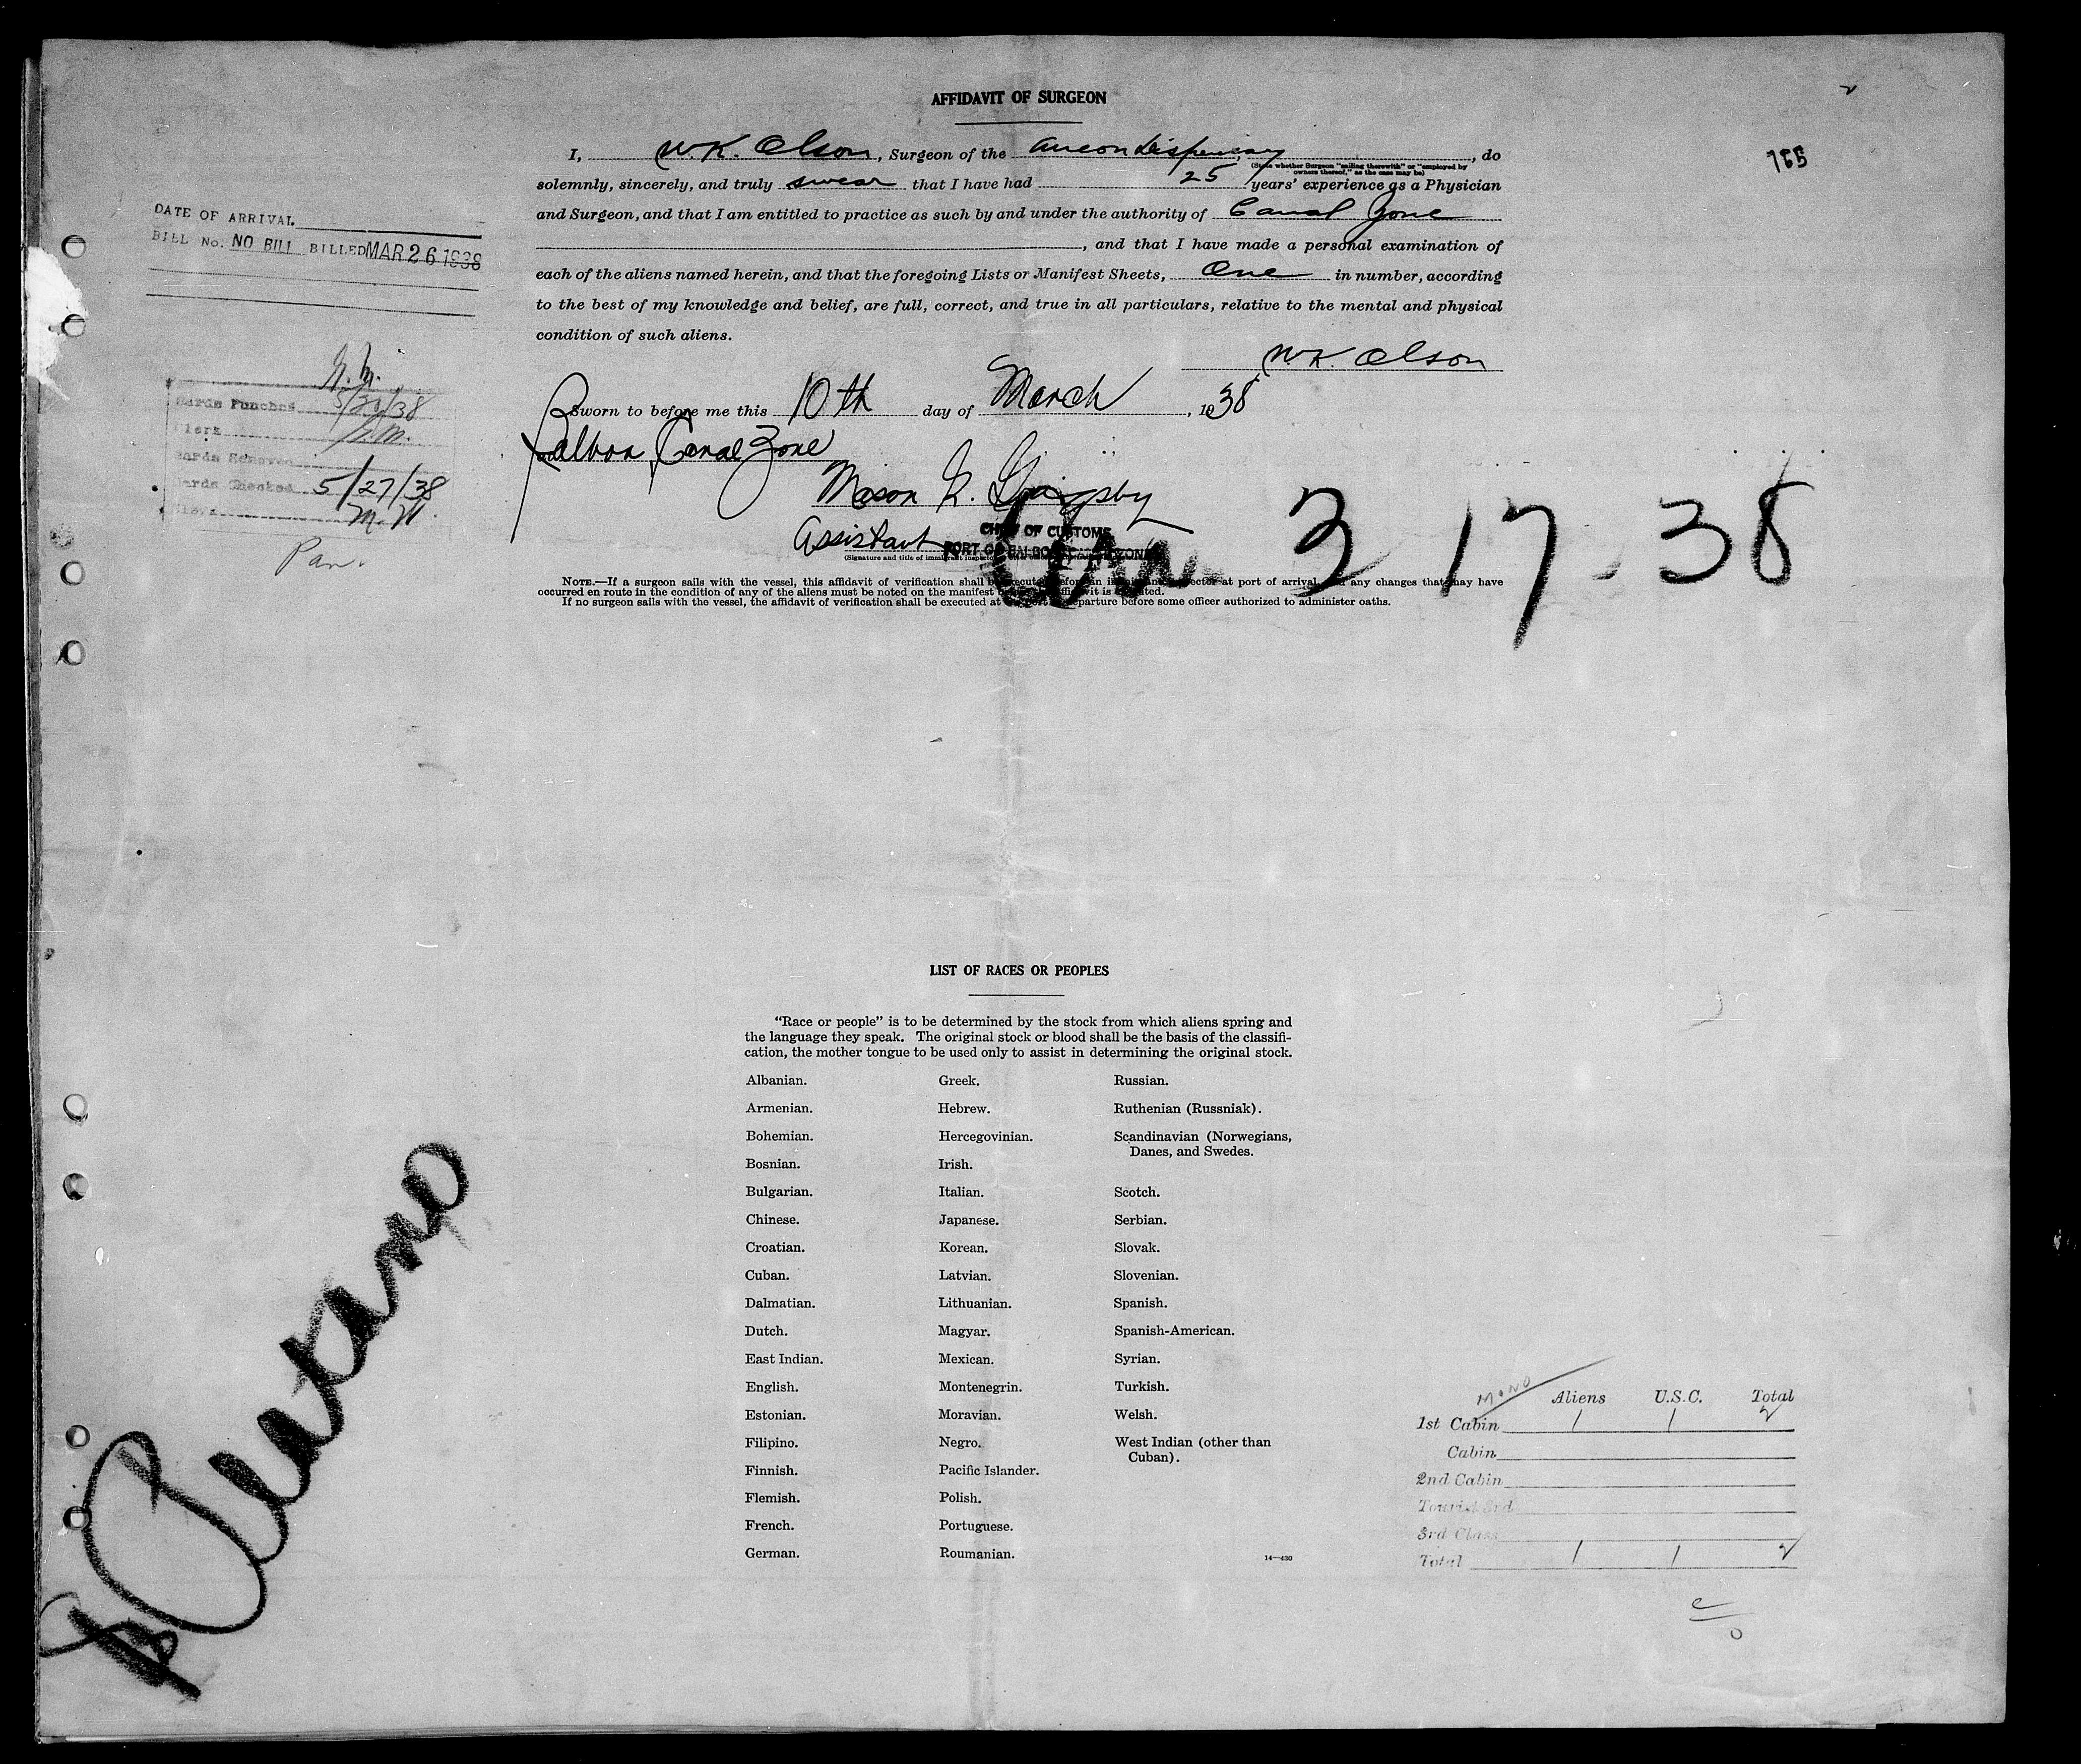 AFFIDAVIT OF SURGEON
165
I, W.K. Olson, Surgeon of the Ancon Dispensary, do
(State whether Surgeon "sailing therewith" or "employed by owners thereof," as the case may be)
solemnly, sincerely, and truly swear that I have had 25 years' experience as a Physician
and Surgeon, and that I am entitled to practice as such by and under the authority of Canal Zone
, and that I have made a personal examination of
each of the aliens named herein, and that the foregoing Lists or Manifest Sheets, One in number, according
to the best of my knowledge and belief, are full, correct, and true in all particulars, relative to the mental and physical
condition of such aliens.
W.K. Olson
Sworn to before me this 10th day of March, 1938
Balboa, Canal Zone
Mason
Assistant CHIEF OF CUSTOMS
PORT OF BALBOA CANAL ZONE
(Signature and title of immigrant inspector
Arr. 3 17 - 38
NOTE.—If a surgeon sails with the vessel, this affidavit of verification shall be executed before an immigrant inspector at port of arrival, and any changes that may have
occurred en route in the condition of any of the aliens must be noted on the manifest before affidavit is executed.
If no surgeon sails with the vessel, the affidavit of verification shall be executed at the port of departure before some officer authorized to administer oaths.
DATE OF ARRIVAL
BILL No. NO BILL BILLED MAR 26 1938
Cards Punched
Clerk
Cards Removed
Cards Checked 5/27/38
Clerk
Pan.
LIST OF RACES OR PEOPLES
"Race or people" is to be determined by the stock from which aliens spring and
the language they speak. The original stock or blood shall be the basis of the classifi-
cation, the mother tongue to be used only to assist in determining the original stock.
Albanian.
Armenian.
Bohemian.
Bosnian.
Bulgarian.
Chinese.
Croatian.
Cuban.
Dalmatian.
Dutch.
East Indian.
English.
Estonian.
Filipino.
Finnish.
Flemish.
French.
German.
Greek.
Hebrew.
Hercegovinian.
Irish.
Italian.
Japanese.
Korean.
Latvian.
Lithuanian.
Magyar.
Mexican.
Montenegrin.
Moravian.
Negro.
Pacific Islander.
Polish.
Portuguese.
Roumanian.
Russian.
Ruthenian (Russniak).
Scandinavian (Norwegians,
Danes, and Swedes.
Scotch.
Serbian.
Slovak.
Slovenian.
Spanish.
Spanish-American.
Syrian.
Turkish.
Welsh.
West Indian (other than
Cuban).
14—430
MONO
Aliens U.S.C. Total
1st Cabin 1 1 2
Cabin
2nd Cabin
Tourist 3rd
3rd Class
Total 1 1 2